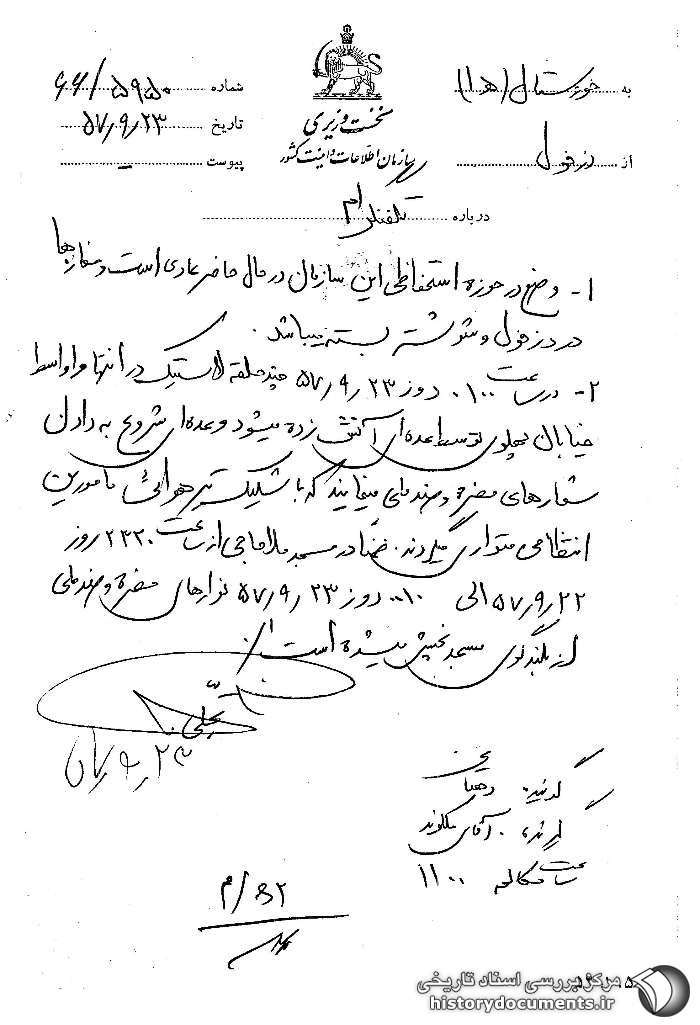 به خوزستان (ه‍ ۱)
از دزفول
نخست وزیری
سازمان اطلاعات و امنیت کشور
شماره ۶۶/۵۹۵۰
تاریخ ۵۷٫۹٫۲۳
پیوست –
درباره تلفنگرام
۱- وضع در حوزه استحفاظی این سازمان در حال حاضر عادی است و مغازه‌ها
در دزفول و شوشتر بسته میباشد.
۲- در ساعت ۰۱۰۰ روز ۵۷٫۹٫۲۳ چند حلقه لاستیک در انتها و اواسط
خیابان پهلوی توسط عده‌ای آتش زده میشود و عده‌ای شروع به دادن
شعارهای مضره و ضد ملی مینمایند که با شلیک تیر هوائی مامورین
انتظامی متواری میگردند. ضمناً در مسجد ملاحاجی از ساعت ۲۳۲۰ روز
۵۷٫۹٫۲۲ الی ۰۰۱۰ روز ۵۷٫۹٫۲۳ نوارهای مضره و ضد ملی
از بلندگوی مسجد پخش میشده است.
تجلی
۵۷٫۹٫۲۳
گوینده:
گیرنده: آقای
ساعت مکالمه ۱۱۰۰
مرکز بررسی اسناد تاریخی
historydocuments.ir